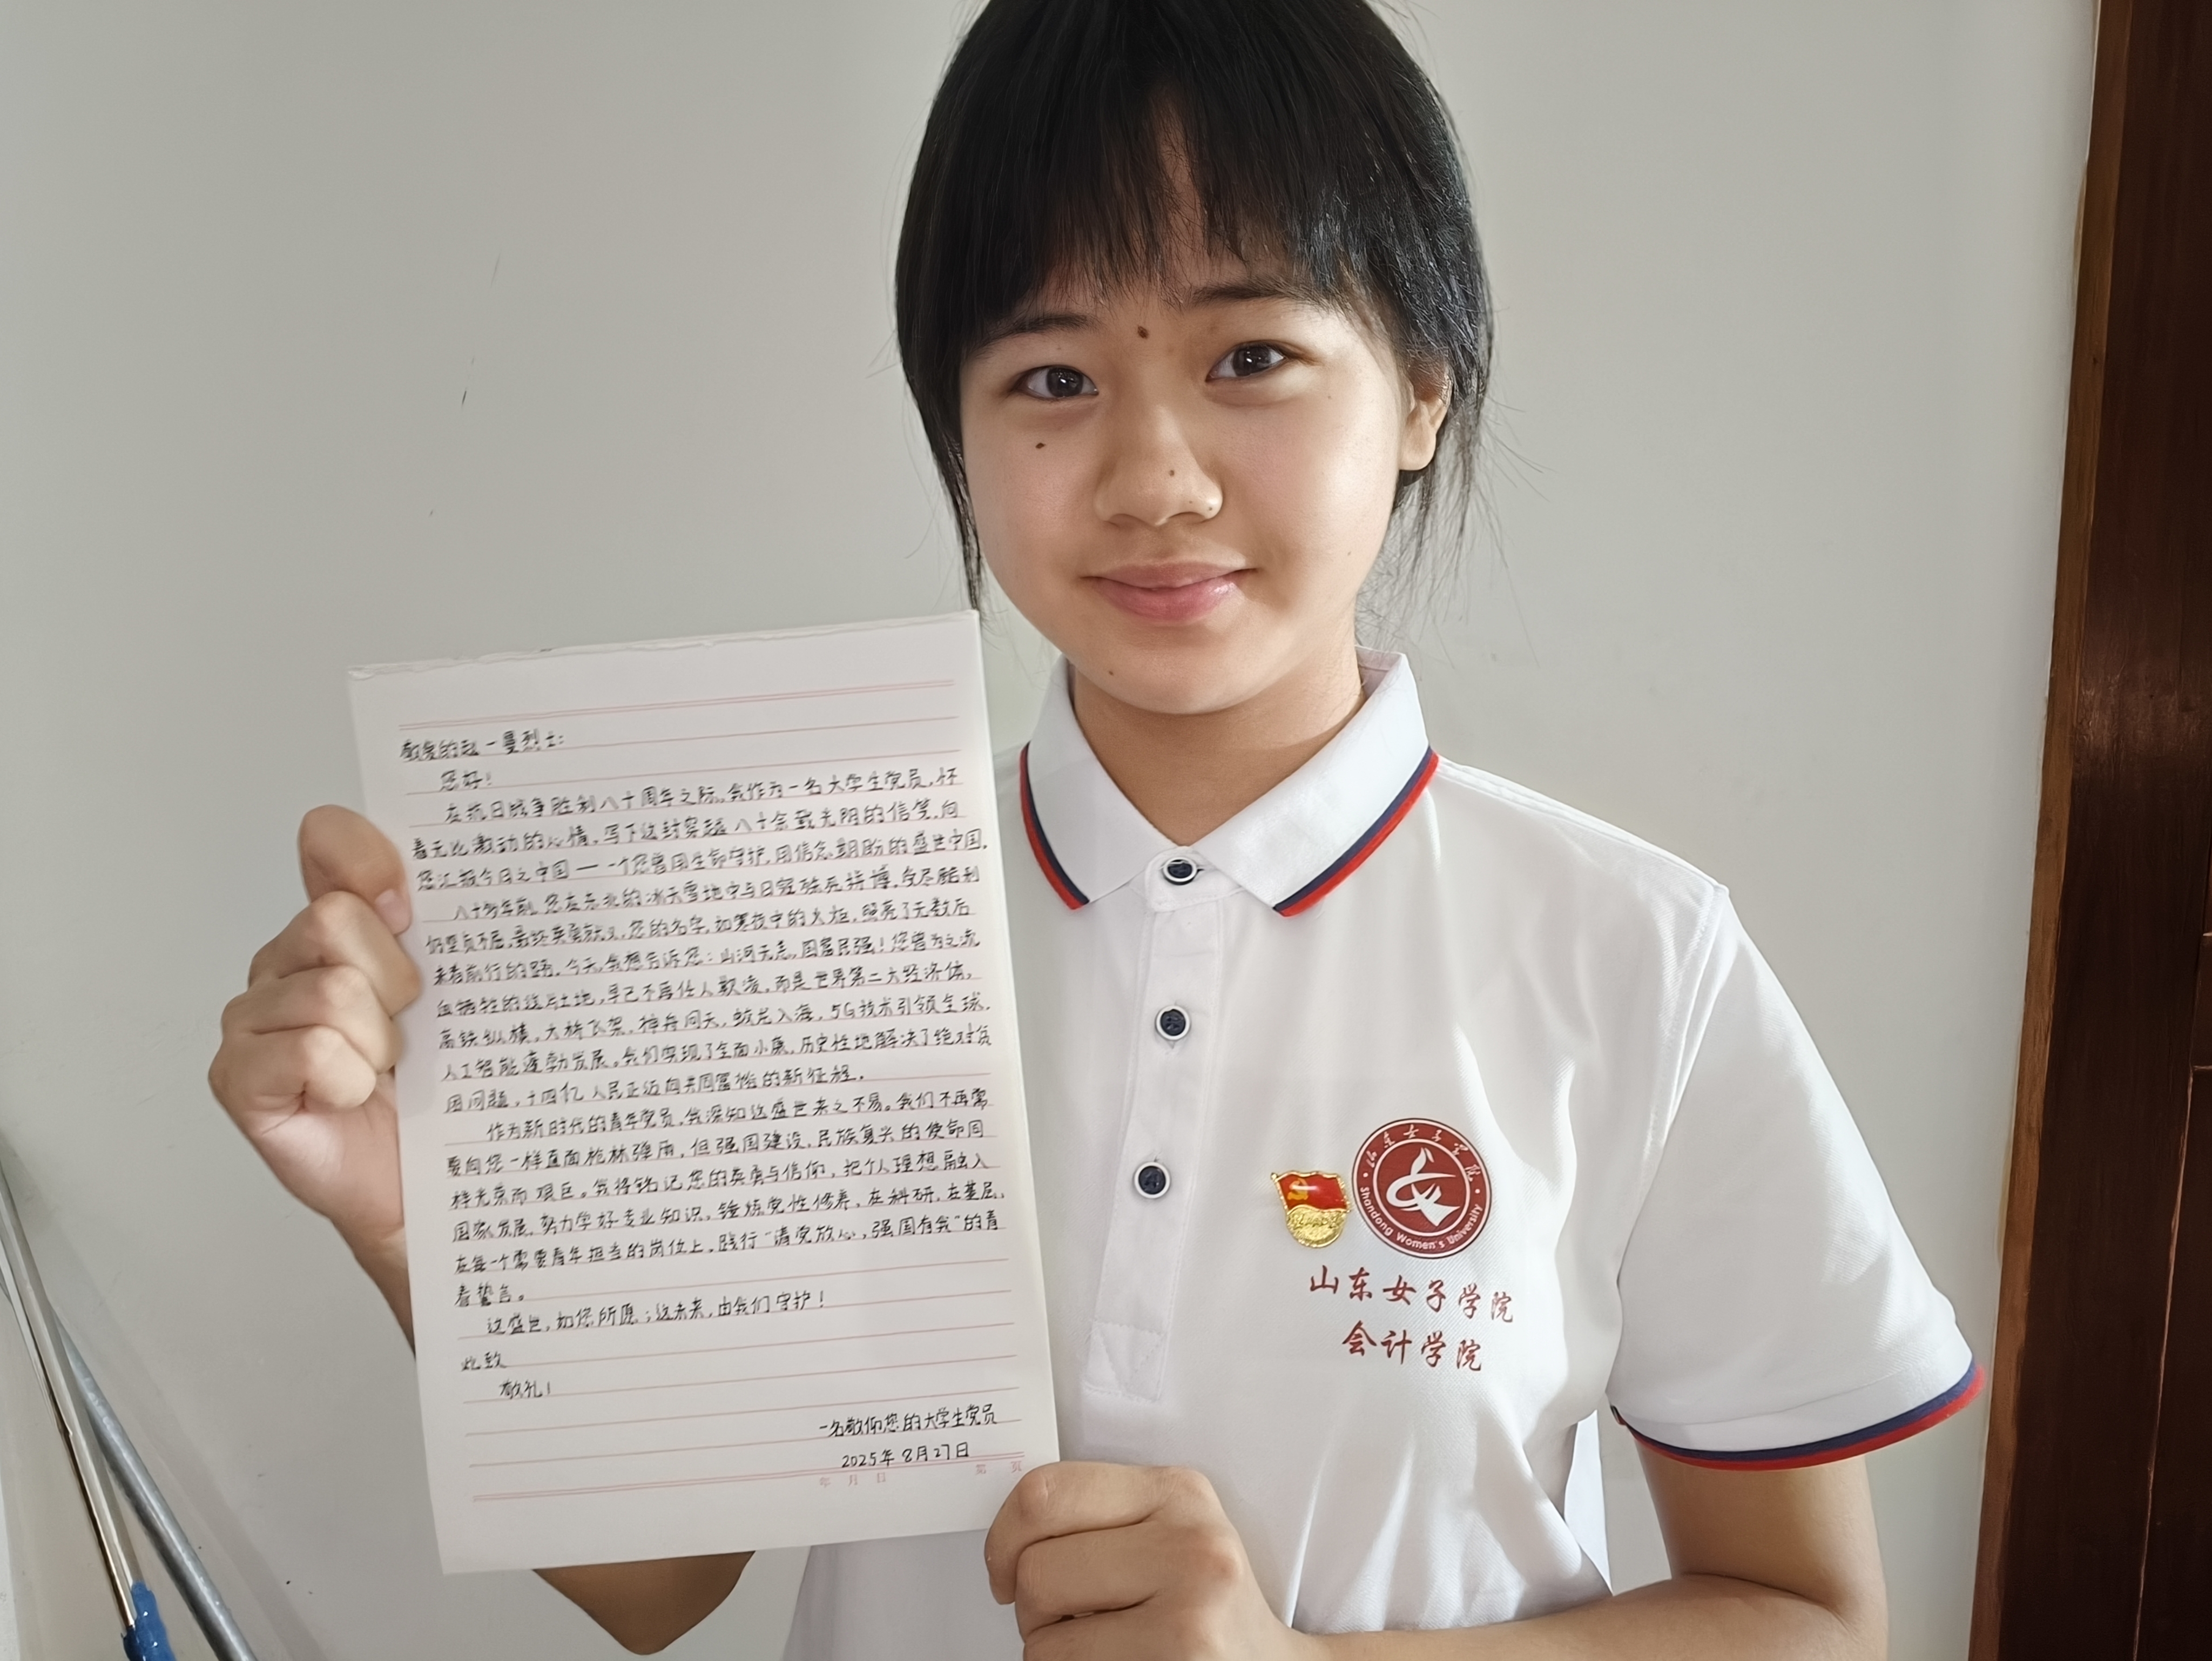 敬爱的赵一曼烈士:
您好!
在抗日战争胜利八十周年之际,我作为一名大学生党员,怀
着无比激动的心情,写下这封穿越八十余载光阴的信笺,向
您汇报今日之中国——一个您曾用生命守护,用信念期盼的盛世中国。
八十多年前,您在东北的冰天雪地中与日寇殊死拼搏,受尽酷刑
仍坚贞不屈,最终英勇就义,您的名字,如寒夜中的火炬,照亮了无数后
来者前行的路。今天,我想告诉您:山河无恙,国富民强!您曾为之流
血牺牲的这片土地,早已不再任人欺凌,而是世界第二大经济体,
高铁纵横,大桥飞架,神舟问天,蛟龙入海,5G技术引领全球,
人工智能蓬勃发展。我们实现了全面小康,历史性地解决了绝对贫
困问题,十四亿人民正迈向共同富裕的新征程。
作为新时代的青年党员,我深知这盛世来之不易。我们不再需
要向您一样直面枪林弹雨,但强国建设、民族复兴的使命同
样光荣而艰巨。我将铭记您的英勇与信仰,把个人理想融入
国家发展,努力学好专业知识,锤炼党性修养,在科研,在基层,
在每一个需要青年担当的岗位上,践行“请党放心,强国有我”的青
春誓言。
这盛世,如您所愿;这未来,由我们守护!
此致
敬礼!
一名敬仰您的大学生党员
2025年8月27日
年 月 日 第 页
山东女子学院
Shandong Women's University
山东女子学院
会计学院